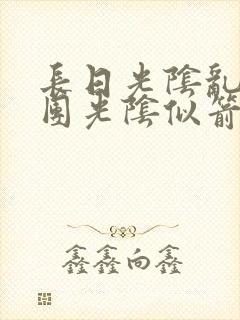 長日光陰亂
團光陰似箭
鑫鑫向鑫